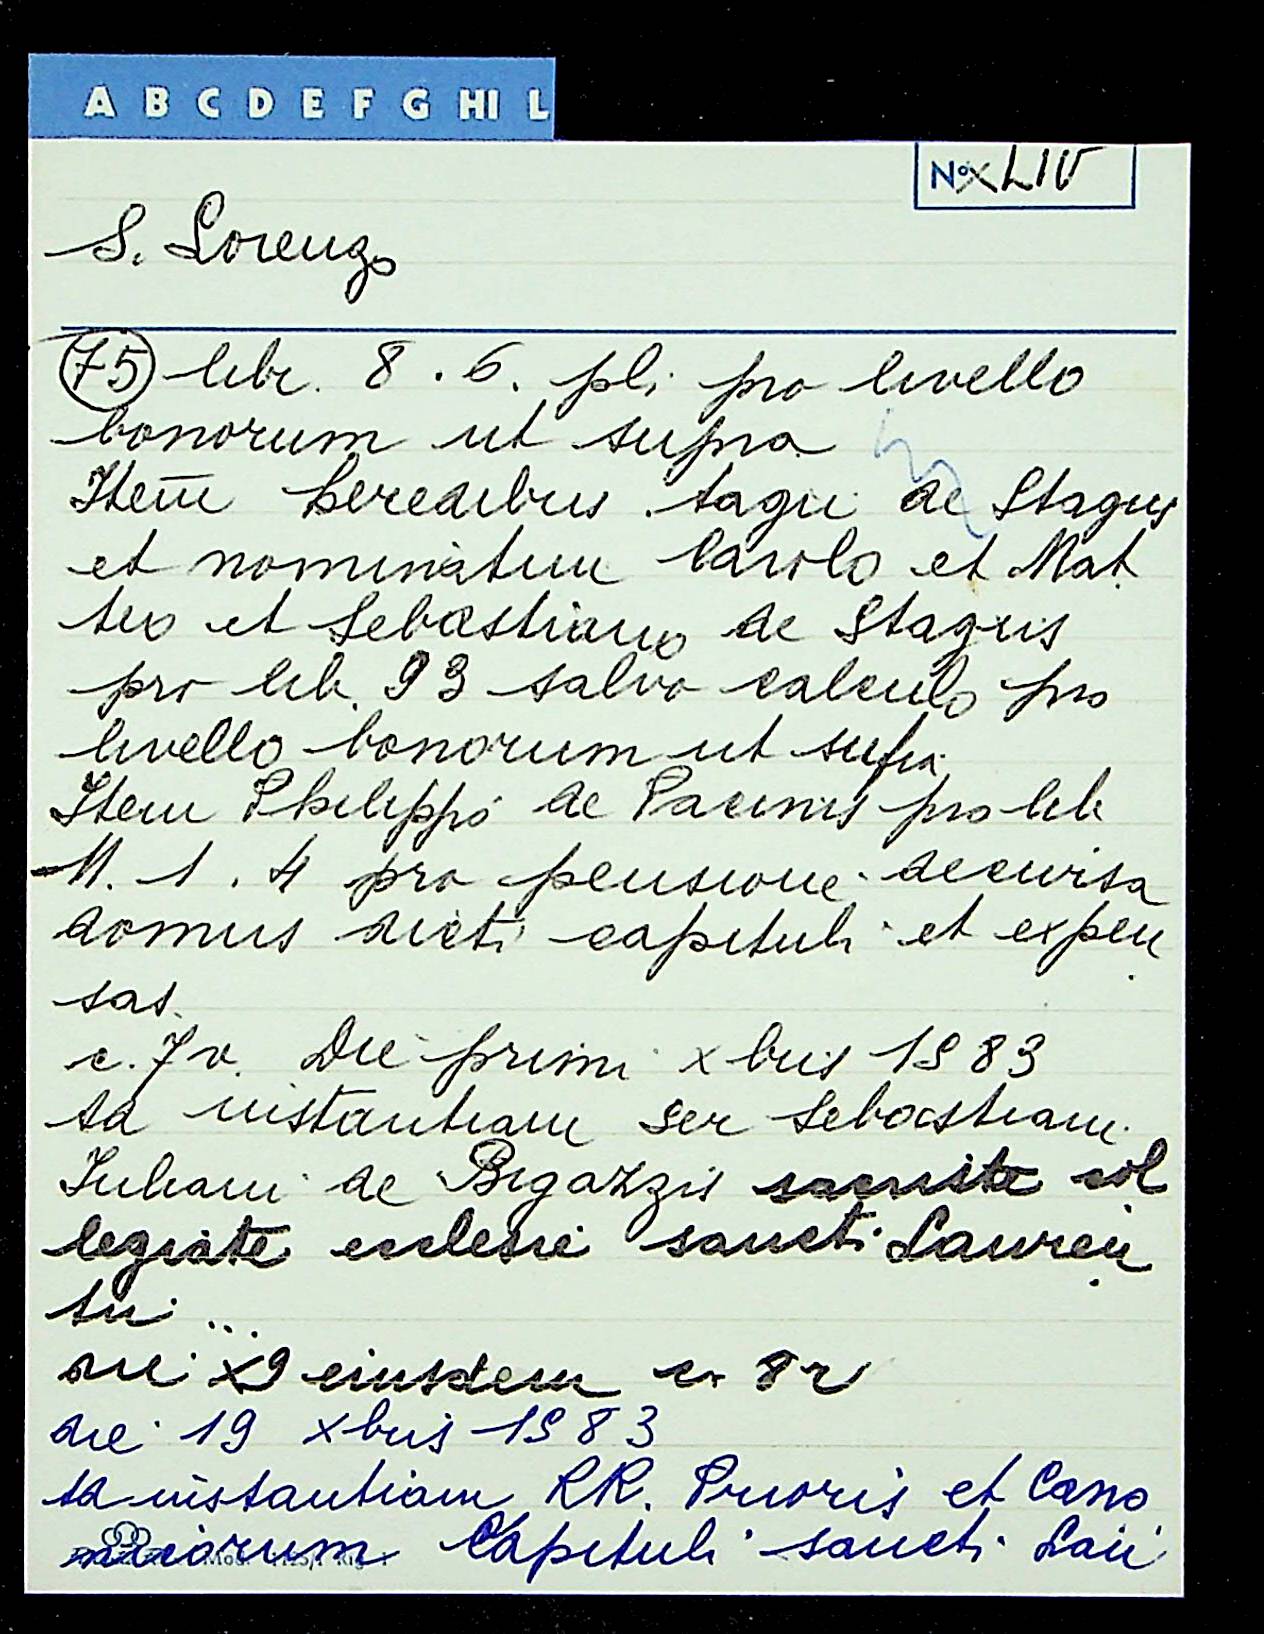 A B C D E F G HI L
N° XLIV
S. Lorenzo
75 libr. 8. 6. pli pro livello
bonorum ut supra
Item heredibus tagii de Stagiis
et nominatim Carolo et Mat
teo et Sebastiano de Stagiis
pro lib. 93 salvo calculo pro
livello bonorum ut supra
Item Philippo de Pacinis pro lib
11. 1. 4 pro pensione decursa
domus dicti capituli et expen
sas.
c. 7 v. Die primi xbris 1583
Ad instantiam Ser Sebastiani
Iuliani de Bigazzis sacriste col
legiate ecclesie sancti Lauren
tii ...
die x9 eiusdem c. 8 r
die 19 xbris 1583
Ad instantiam RR. Prioris et Cano
nicorum Capituli sancti Lau